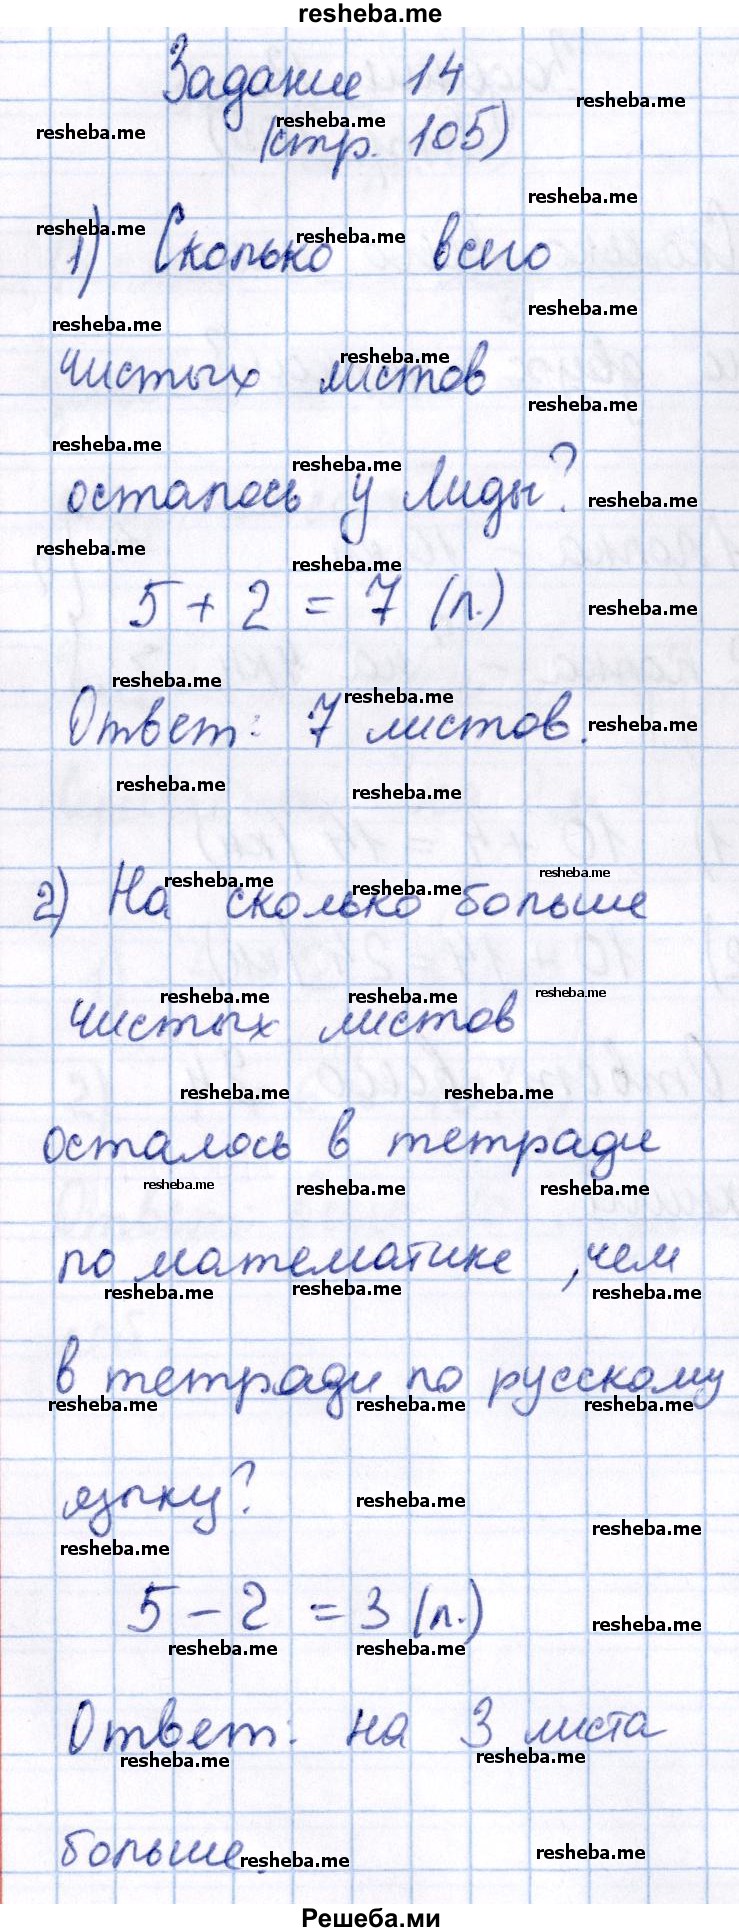 resheba.me
Задание 14
(стр. 105)
1) Сколько всего
чистых листов
осталось у Лиды?
5 + 2 = 7 (л.)
Ответ: 7 листов.
2) На сколько больше
чистых листов
осталось в тетради
по математике, чем
в тетради по русскому
языку?
5 - 2 = 3 (л.)
Ответ: на 3 листа
больше.
Решеба.ми